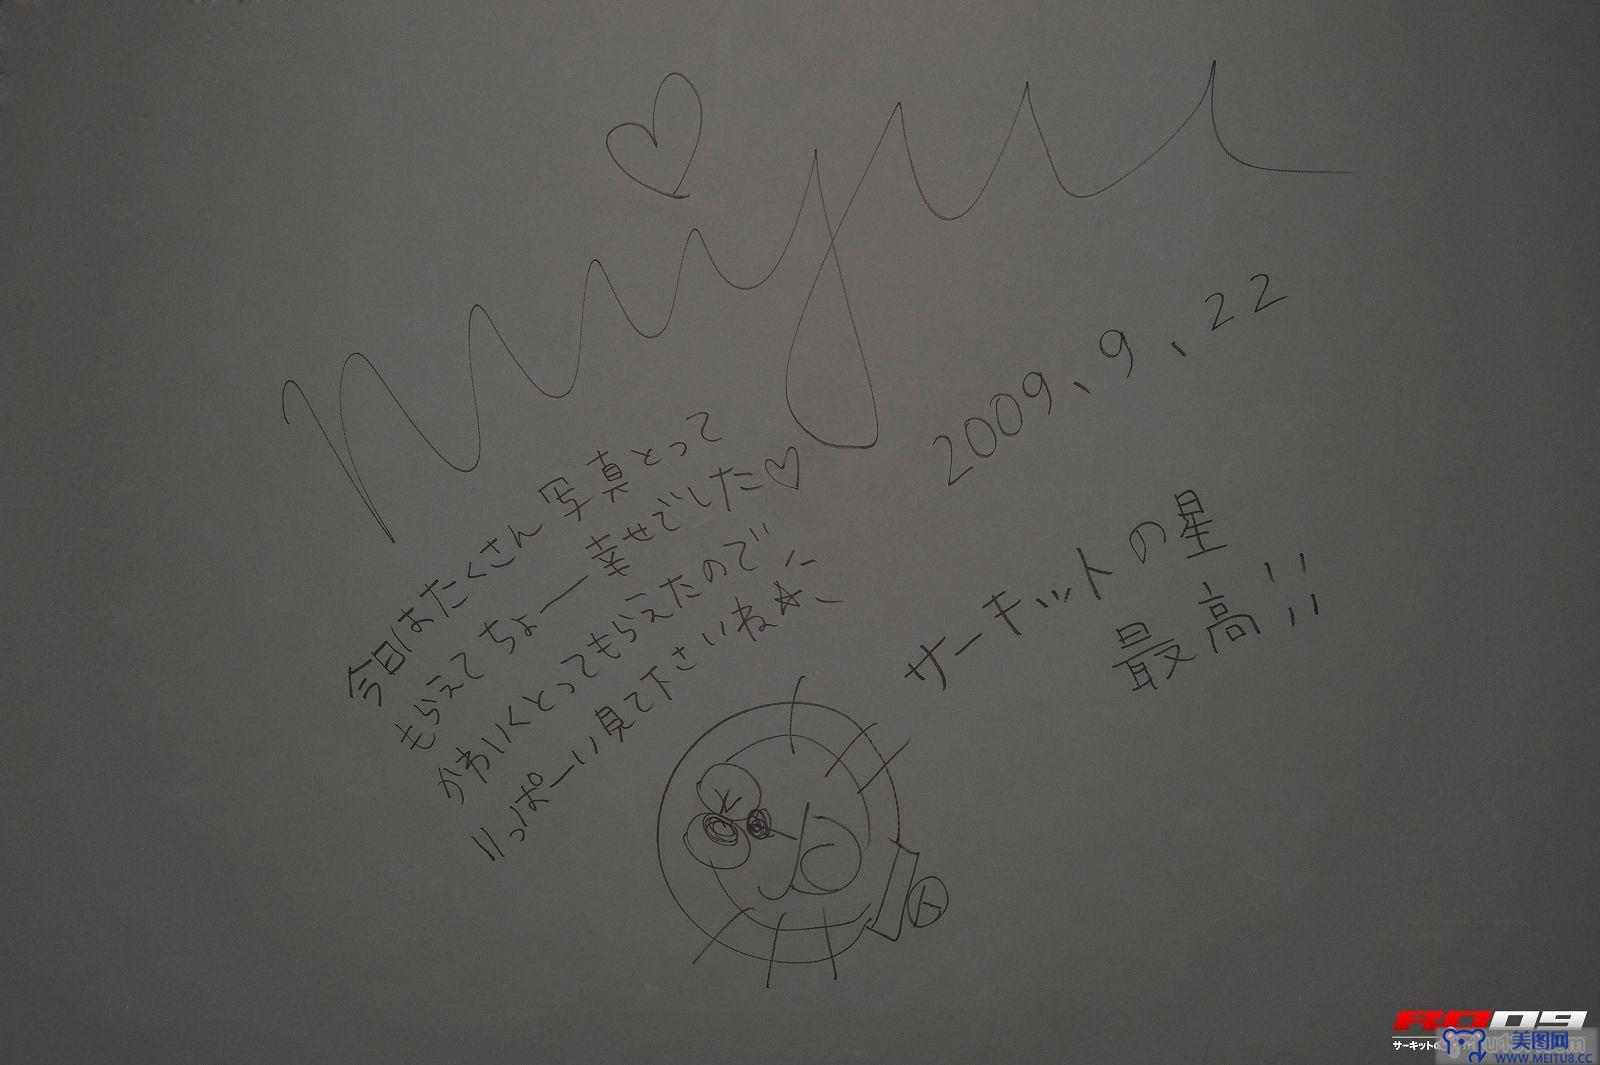 miyu
2009、9、22
今日はたくさん写真とって
もらえてちょー幸せでした♡
かわいくとってもらえたので
いっぱーい見て下さいね☆
サーキットの星
最高!!
RQ09
サーキットの
美图网
WWW.MEITU8.CC